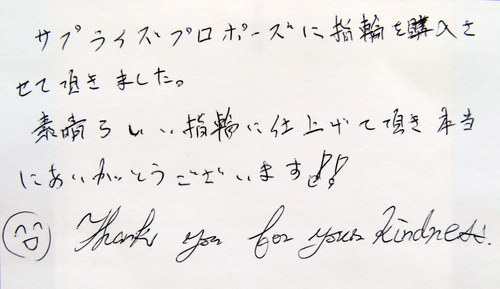 サプライズプロポーズに指輪を購入さ
せて頂きました。
素晴らしい指輪に仕上げて頂き本当
にありがとうございます!!
Thank you for your kindness.